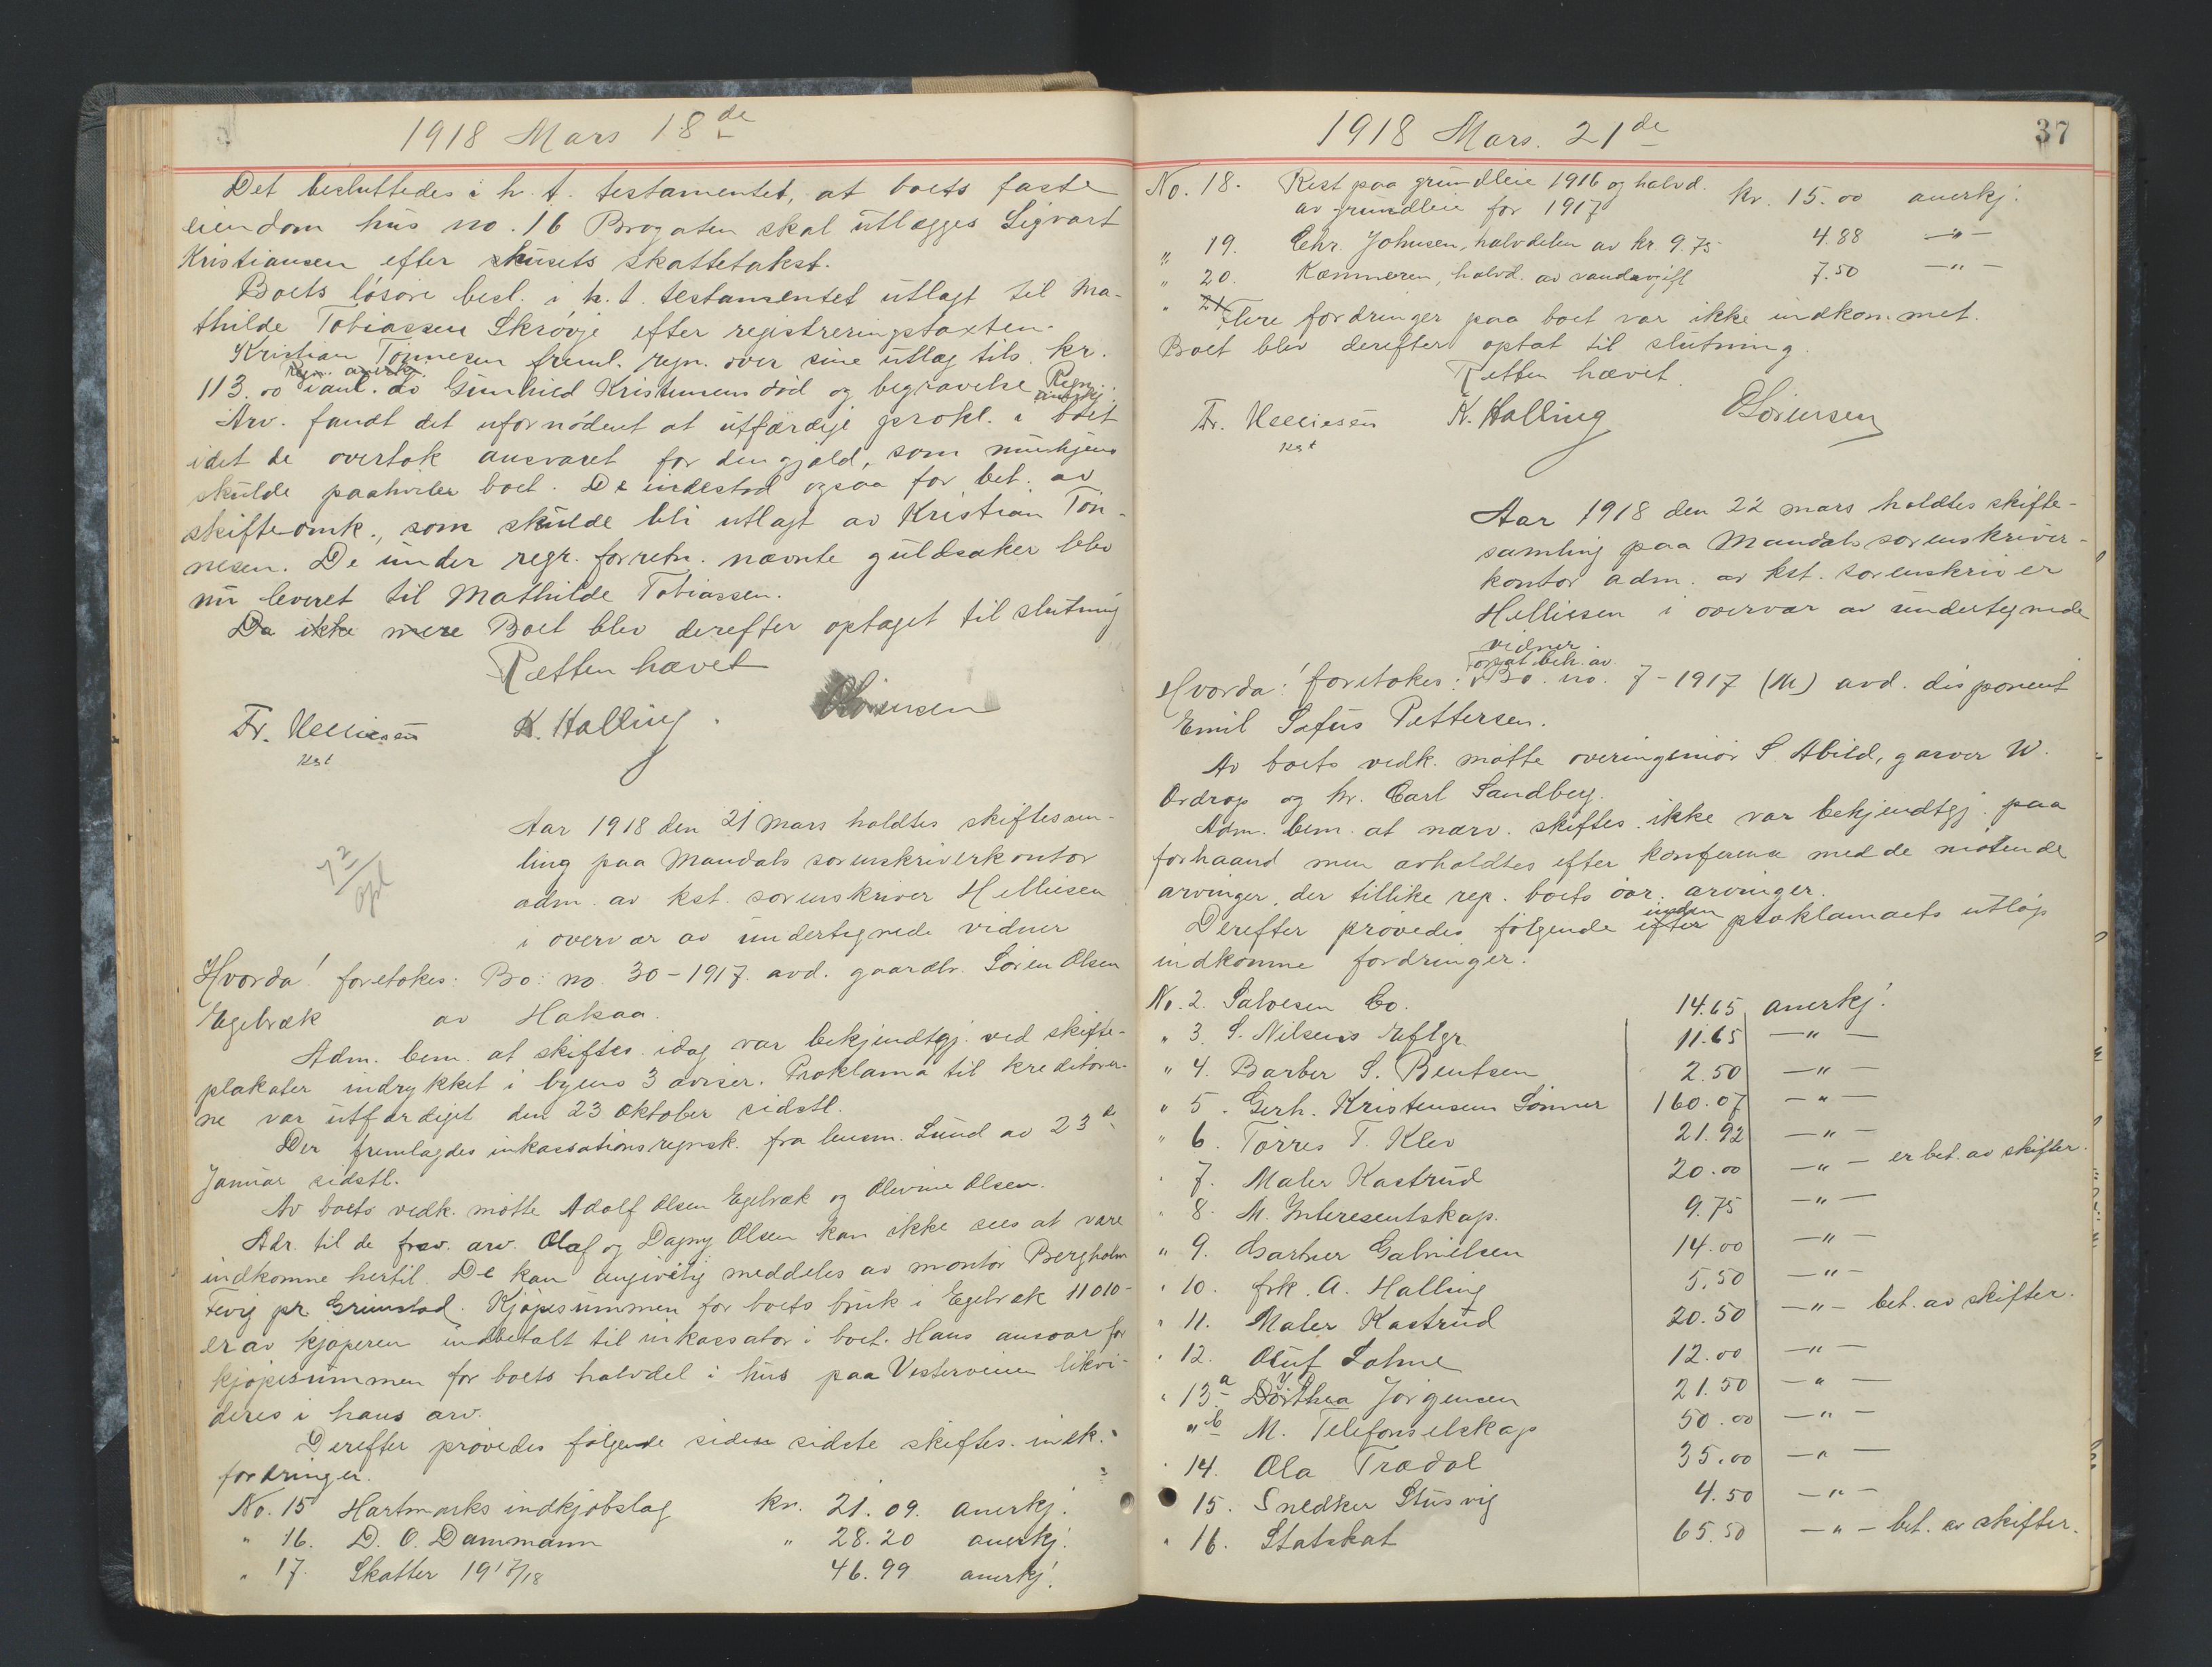 1918 Mars 18de
Det besluttedes i h. t. testamentet, at boets faste
eiendom hus no. 16 Brogaten skal utlægges Sigvart
Kristiansen efter husets skattetakst.
Boets løsøre besl. i h. t. testamentet utlagt til Ma-
thilde Tobiassen Skrøvje efter registreringstaxten.
Kristian Tønnesen freml. regn. over sine utlæg tils. kr.
113.00 i anl. av Gunhild Kristensens død og begravelse Regn. anerkj.
Arv. fandt det ufornødent at utfærdige prokl. i boet
idet de overtok ansvaret for den gjæld, som muligens
skulde paahvile boet. De indestod ogsaa for bet. av
skifteomk., som skulde bli utlagt av Kristian Tøn-
nesen. De under regr. forretn. nævnte guldsaker blev
nu leveret til Mathilde Tobiassen.
Da ikke mere Boet blev derefter optaget til slutning
Retten hævet
Fr. Helliesen K. Halling. OSørensen
kst
Aar 1918 den 21 mars holdtes skiftesam-
ling paa Mandals sorenskriverkontor
adm. av kst. sorenskriver Helliesen
i overvær av undertegnede vidner
Hvorda! foretokes: Bo: no. 30-1917. avd. gaardbr. Søren Olsen
Egebræk av Halsaa.
Adm. bem. at skiftes. idag var bekjendtgj. ved skifte-
plakater indrykket i byens 3 aviser. Proklama til kreditorer-
ne var utfærdiget den 23 oktober sidstl.
Der fremlagdes inkassationsregnsk. fra lensm. Lund av 23de
Januar sidstl.
Av boets vedk. møtte Adolf Olsen Egebræk og Olevine Olsen.
Adr. til de frav. arv. Olaf og Dagny Olsen kan ikke sees at være
indkomne hertil. De kan angivelig meddeles av montør Bergholm
Fevig pr. Grimstad. Kjøpesummen for boets bruk i Egebræk 11010-
er av kjøperen indbetalt til inkassator i boet. Hans ansvar for
kjøpesummen for boets halvdel i hus paa Vesterveien likvi-
deres i hans arv.
Derefter prøvedes følgende siden sidste skiftes. indk.
fordringer.
No. 15 Hartmarks indkjøbslag kr. 21.09. anerkj.
" 16. D. O. Dammann " 28.20 anerkj.
" 17. Skatter 1917/18 46.99 anerkj.
1918 Mars. 21de
37
No. 18. Rest paa grundleie 1916 og halvd.
av grundleie for 1917 kr. 15.00 anerkj.
" 19. Chr. Johnsen, halvdelen av kr. 9.75 4.88 —"—
" 20. Kæmneren, halvd. av vandavgift 7.50 —"—
" 21 Flere fordringer paa boet var ikke indkommet.
Boet blev derefter optat til slutning.
Retten hævet.
Fr. Helliesen K. Halling OSørensen
kst
Aar 1918 den 22 mars holdtes skifte-
samling paa Mandals sorenskriver-
kontor adm. av kst. sorenskriver
Helliesen i overvær av undertegnede
vidner.
Hvorda! foretokes: Forsat beh. av Bo. no. 7-1917 (M) avd. disponent
Emil Sofus Pettersen.
Av boets vedk. møtte overingeniør S. Abild, garver W.
Ordrop og hr. Carl Sandberg.
Adm. bem. at nærv. skiftes. ikke var bekjendtgj. paa
forhaand men avholdtes efter konferense med de møtende
arvinger, der tillike rep. boets øvr. arvinger.
Derefter prøvedes følgende efter inden proklamaets utløp
indkomne fordringer.
No. 2. Salvesen Co. 14.65 anerkj!
" 3. S. Nilsens Eftgr. 11.65 —"—
" 4. Barber S. Bentsen 2.50 —"—
" 5. Gerh. Kristensens Sønner 160.07 —"—
" 6. Tørres T. Klev 21.92 —"—
" 7. Maler Kastrud 20.00 —"— er bet. av skifter.
" 8. M. Interesentskap. 9.75 —"—
" 9. Gartner Gabrielsen 14.00 —"—
" 10. frk. A. Halling 5.50 —"—
" 11. Maler Kastrud 20.50 —"— bet. av skifter.
" 12. Oluf Lohne 12.00 —"—
" 13a Dorthea Jørgensen 21.50 —"—
" b M. Telefonselskap 50.00 —"—
" 14. Ola Trædal 35.00 —"—
" 15. Snedker Stusvig 4.50 —"—
" 16. Statskat 65.50 —"— bet. av skifter.